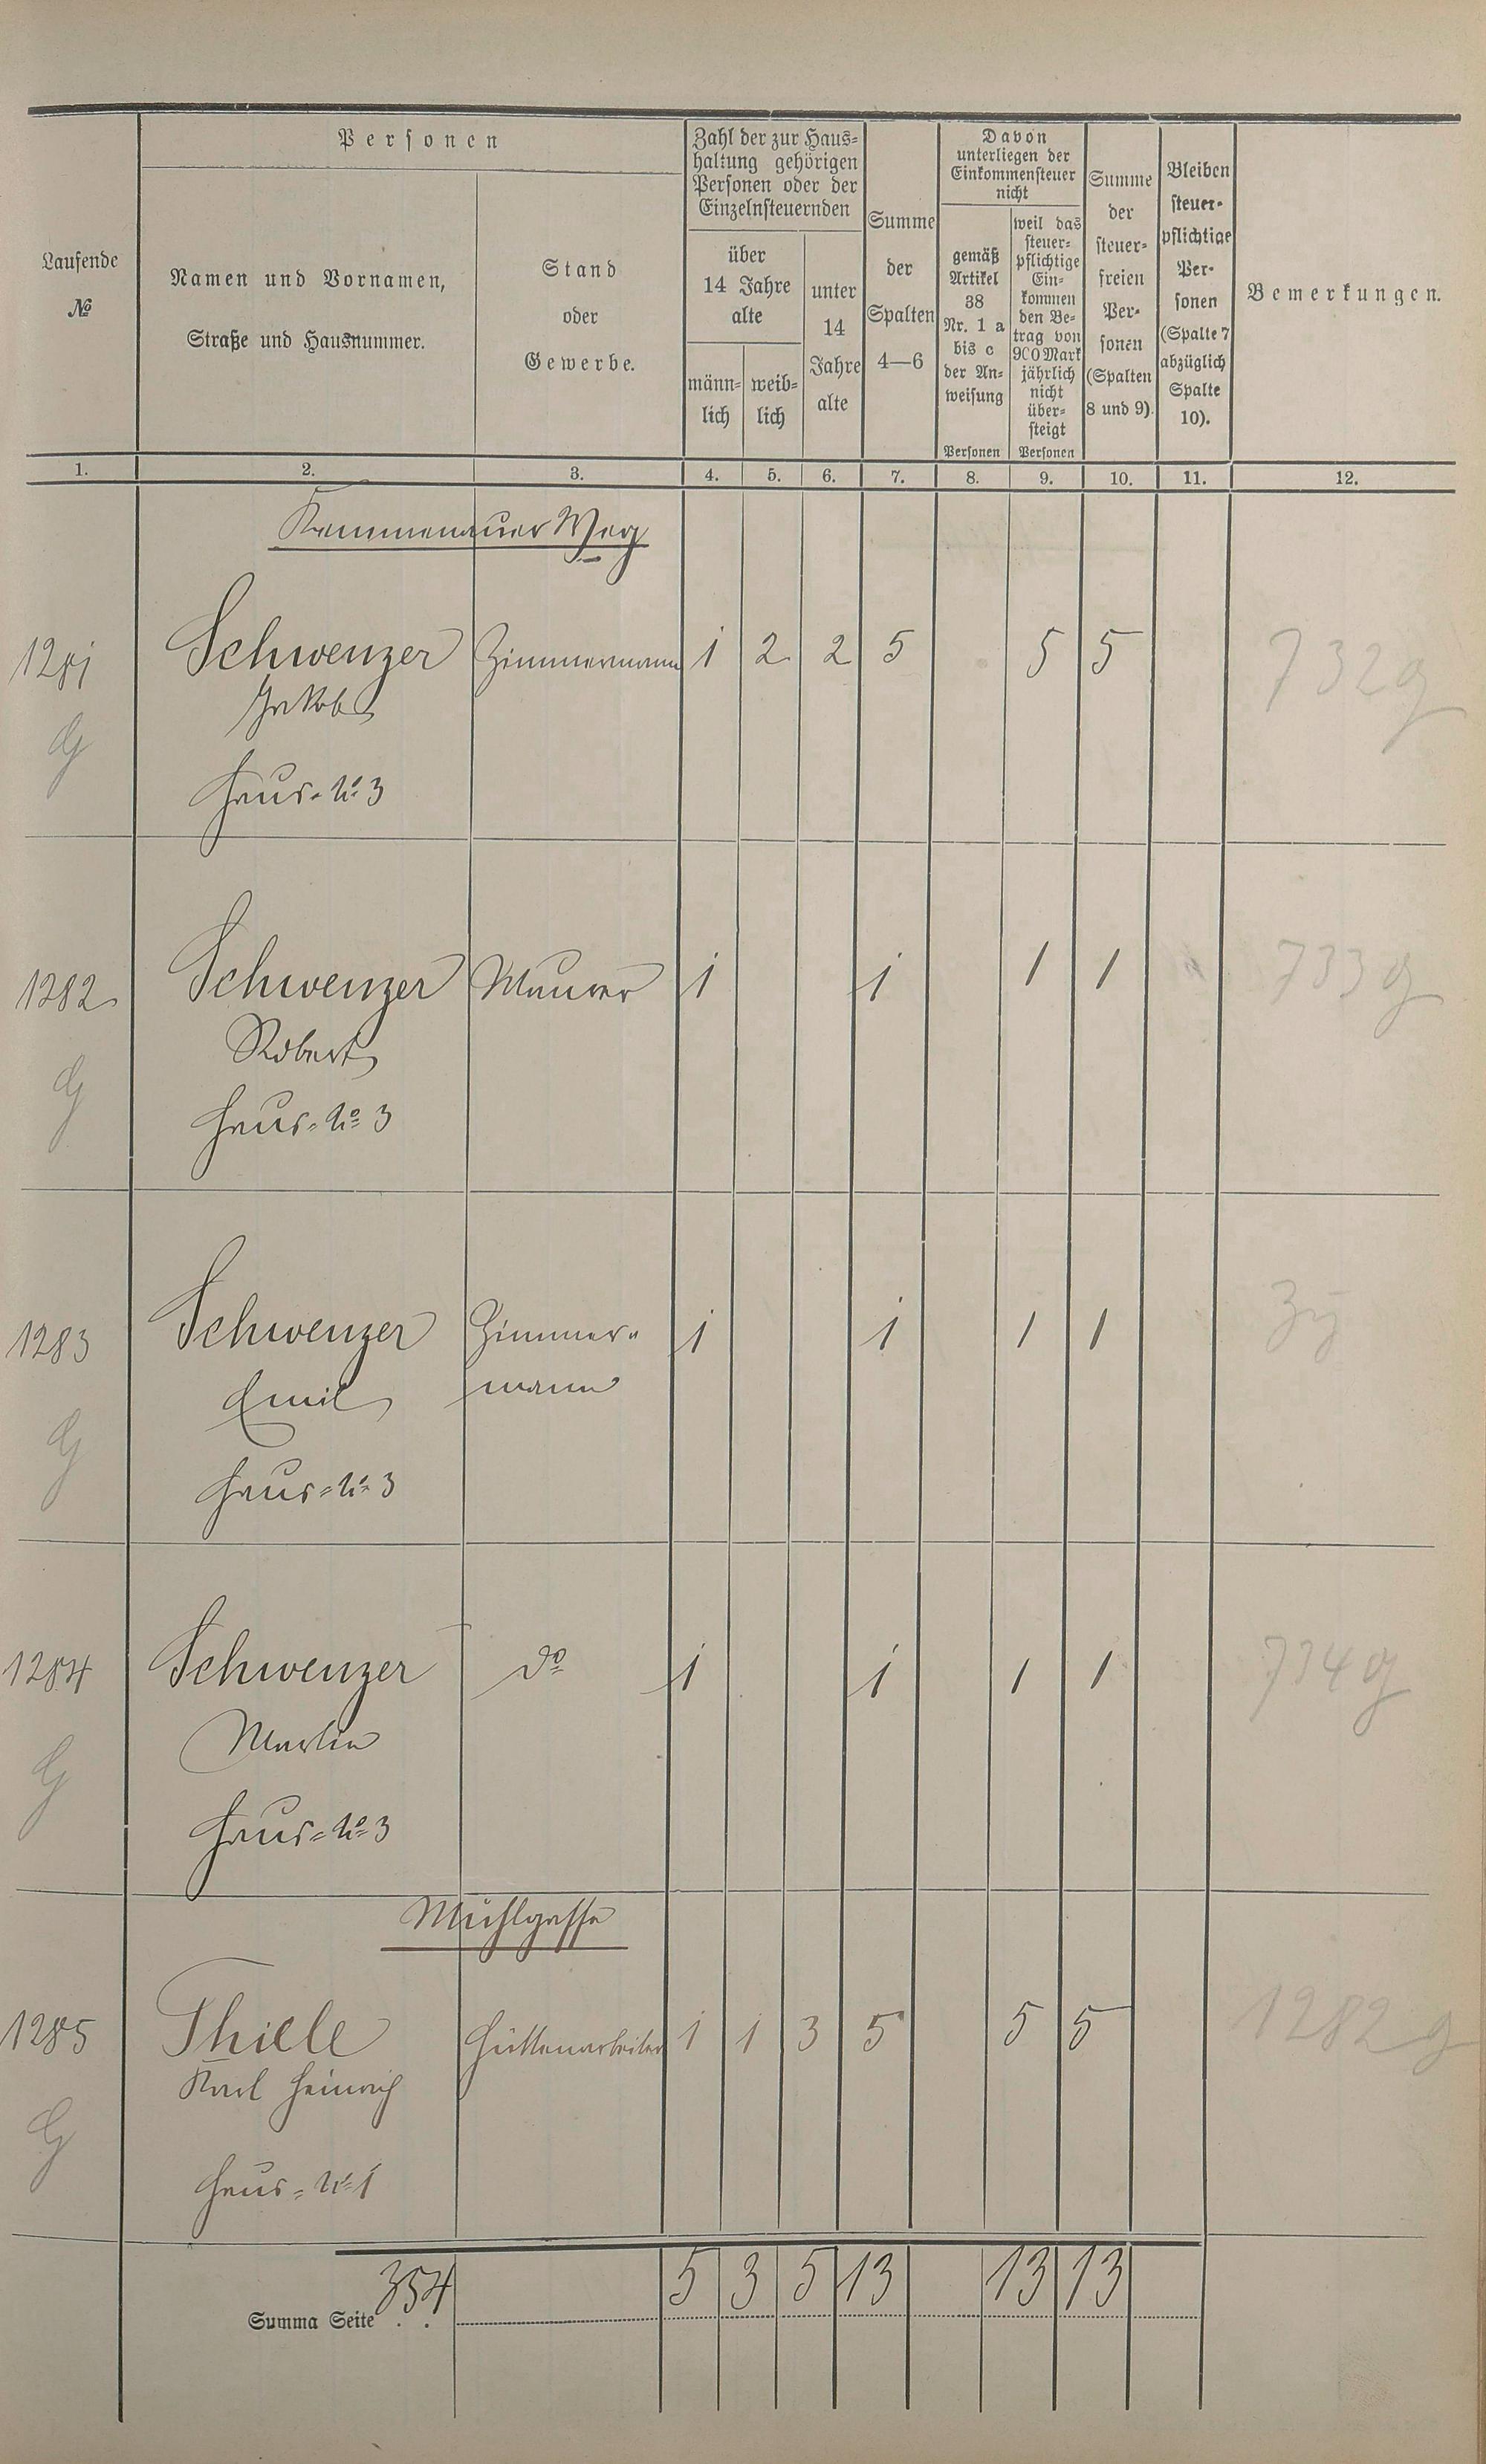 Personen
Zahl der zur Haus-
haltung gehörigen
Personen oder der
Einzelnsteuernden
Davon
unterliegen der
Einkommensteuer
nicht
Laufende
№
Namen und Vornamen,
Straße und Hausnummer.
Stand
oder
Gewerbe.
über
14 Jahre
alte
männ-
lich
weib-
lich
unter
14
Jahre
alte
Summe
der
Spalten
4—6
gemäß
Artikel
38
Nr. 1 a
bis c
der An-
weisung
Personen
weil das
steuer-
pflichtige
Ein-
kommen
den Be-
trag von
900 Mark
jährlich
nicht
über-
steigt
Personen
Summe
der
steuer-
freien
Per-
sonen
(Spalten
8 und 9).
Bleiben
steuer-
pflichtige
Per-
sonen
(Spalte 7
abzüglich
Spalte
10).
Bemerkungen.
1. 2. 3. 4. 5. 6. 7. 8. 9. 10. 11. 12.
Kemmenauer Weg
1281 Schwenzer Zimmermann 1 2 2 5 5 5 732 g
Jakob
G
Haus-No 3
1282 Schwenzer Maurer 1 1 1 1 733 g
Robert
G
Haus-No 3
1283 Schwenzer Zimmer- 1 1 1 1
Emil mann
G
Haus-No 3
1284 Schwenzer do 1 1 1 1 734 g
Martin
G
Haus-No 3
Mühlgasse
1285 Thiele Hüttenarbeiter 1 1 3 5 5 5 1282 g
Karl Heinrich
G
Haus-No 1
Summa Seite 354 5 3 5 13 13 13